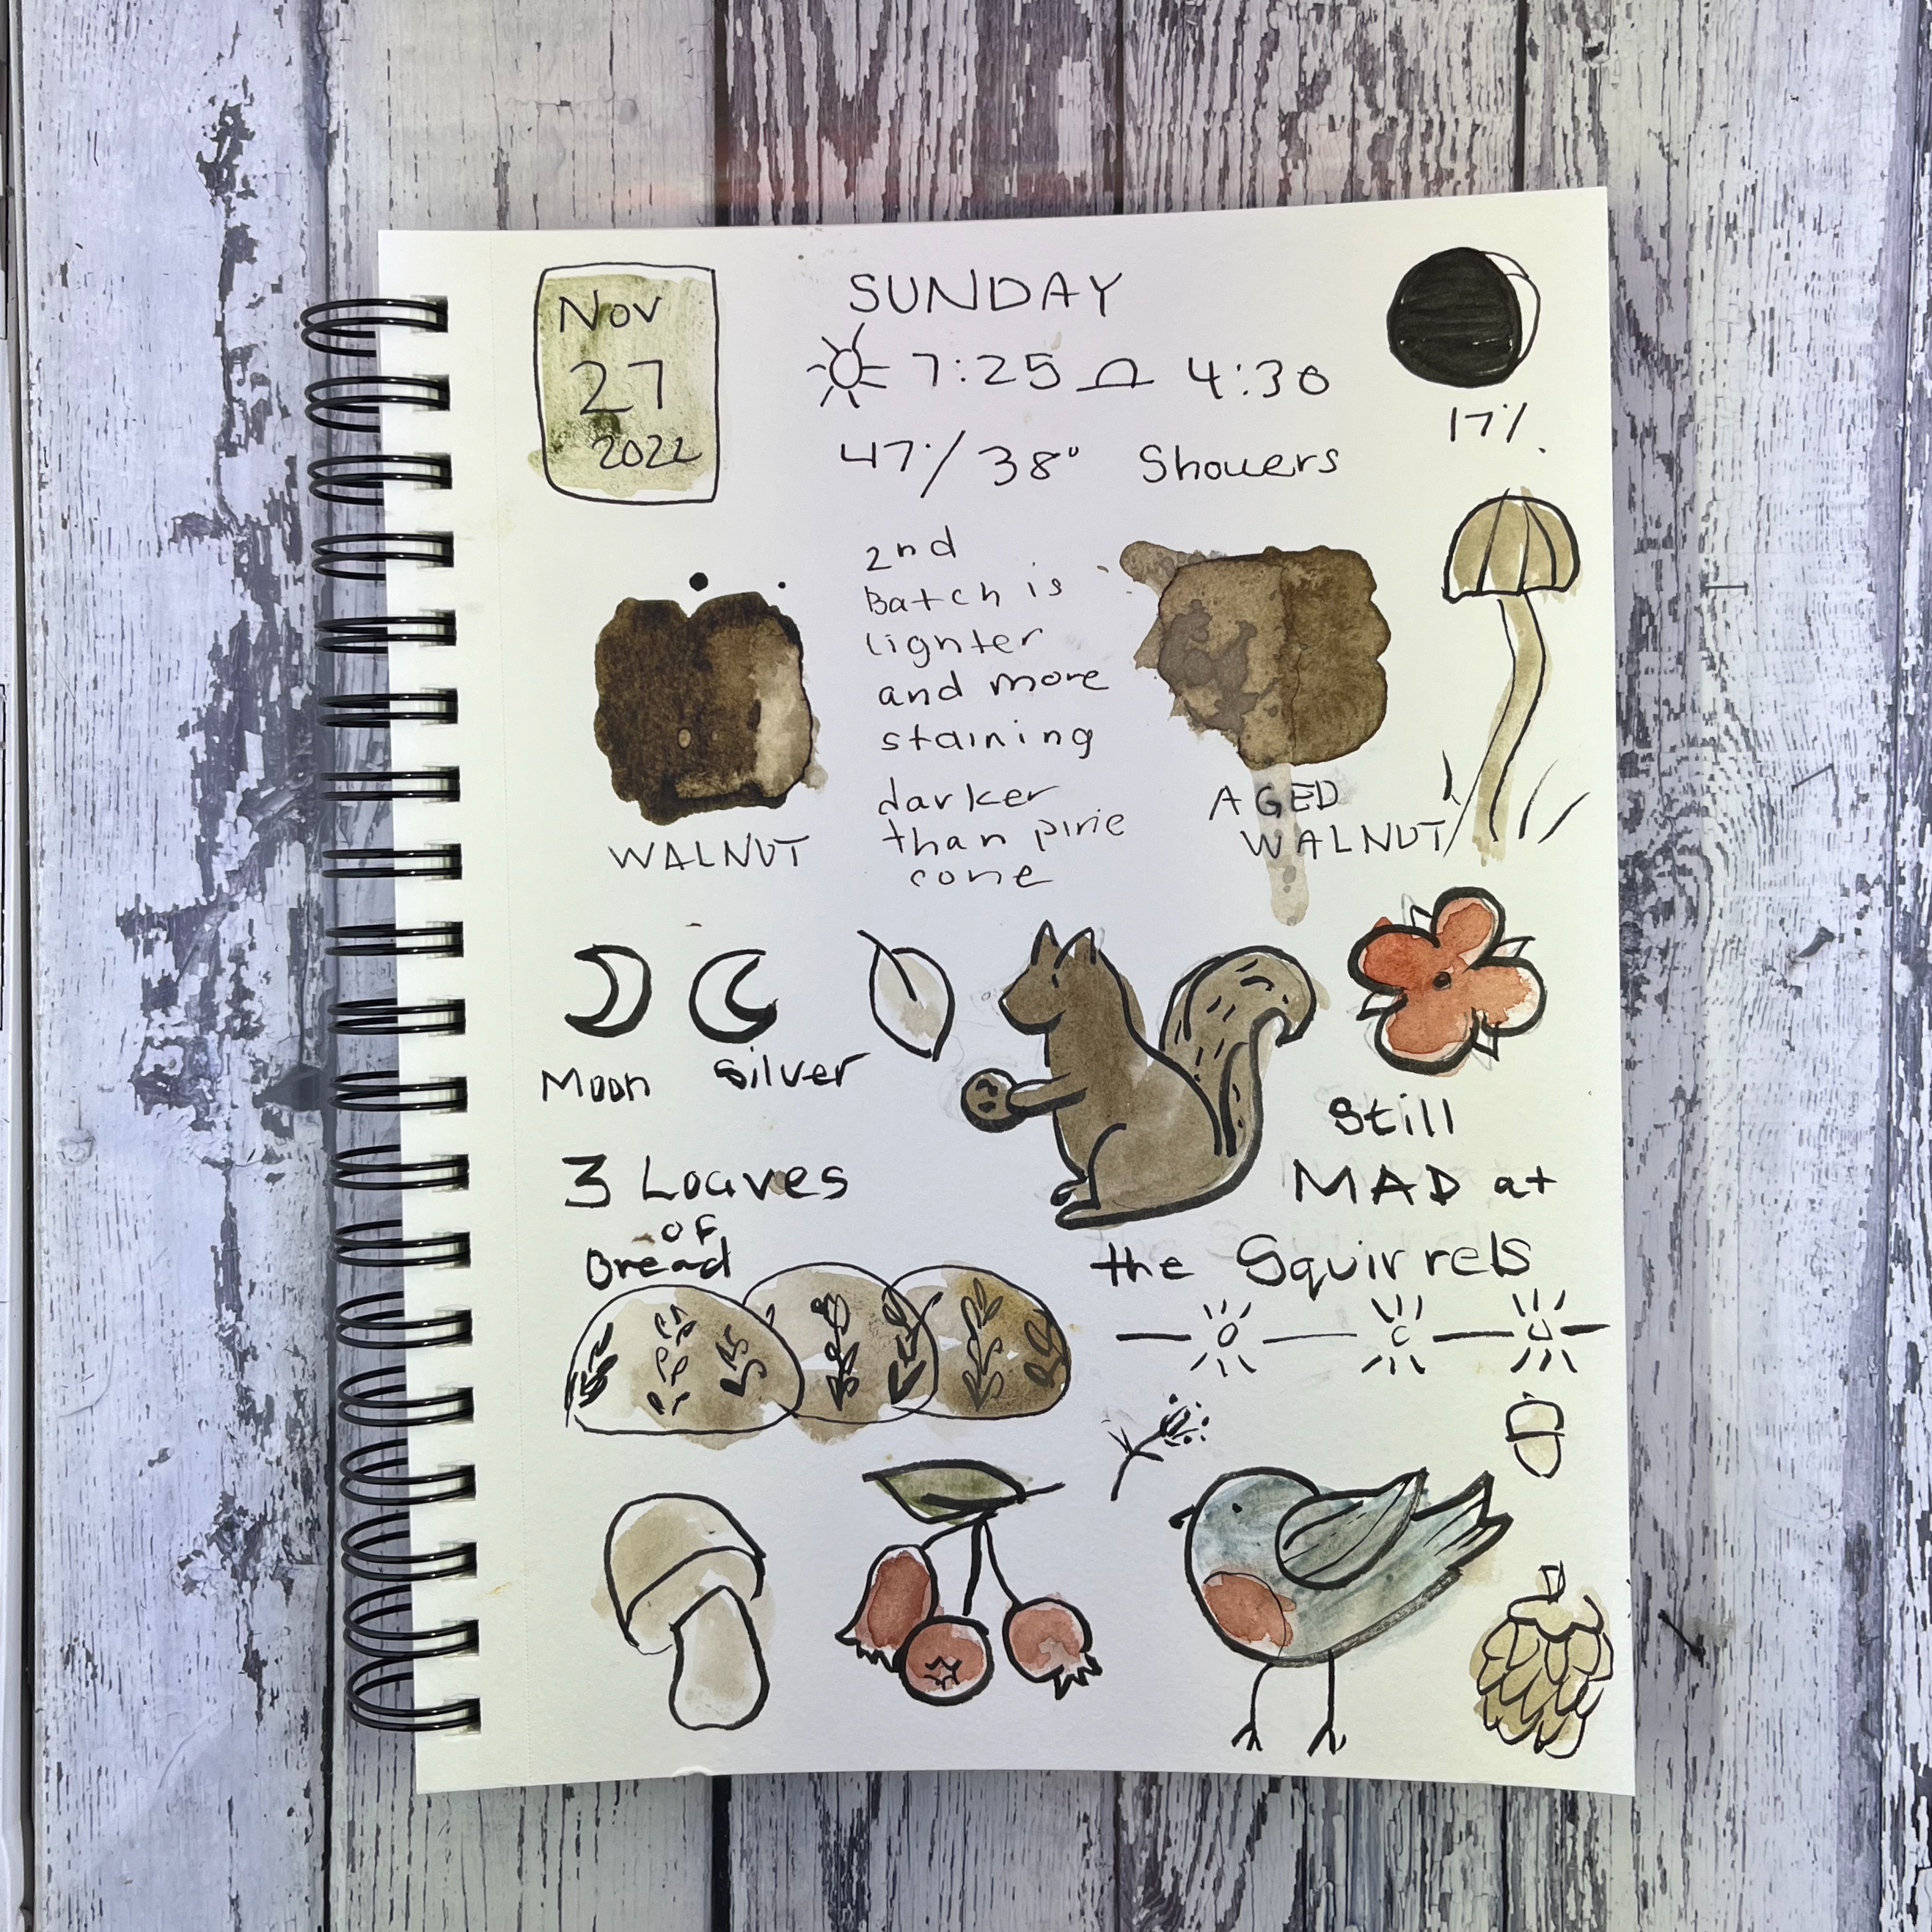 Nov
27
2022
SUNDAY
7:25 4:30
47°/38° Showers
17%.
2nd
Batch is
lighter
and more
staining
darker
than pine
cone
WALNUT
AGED
WALNUT
Moon Silver
3 Loaves
of
Bread
Still
MAD at
the Squirrels